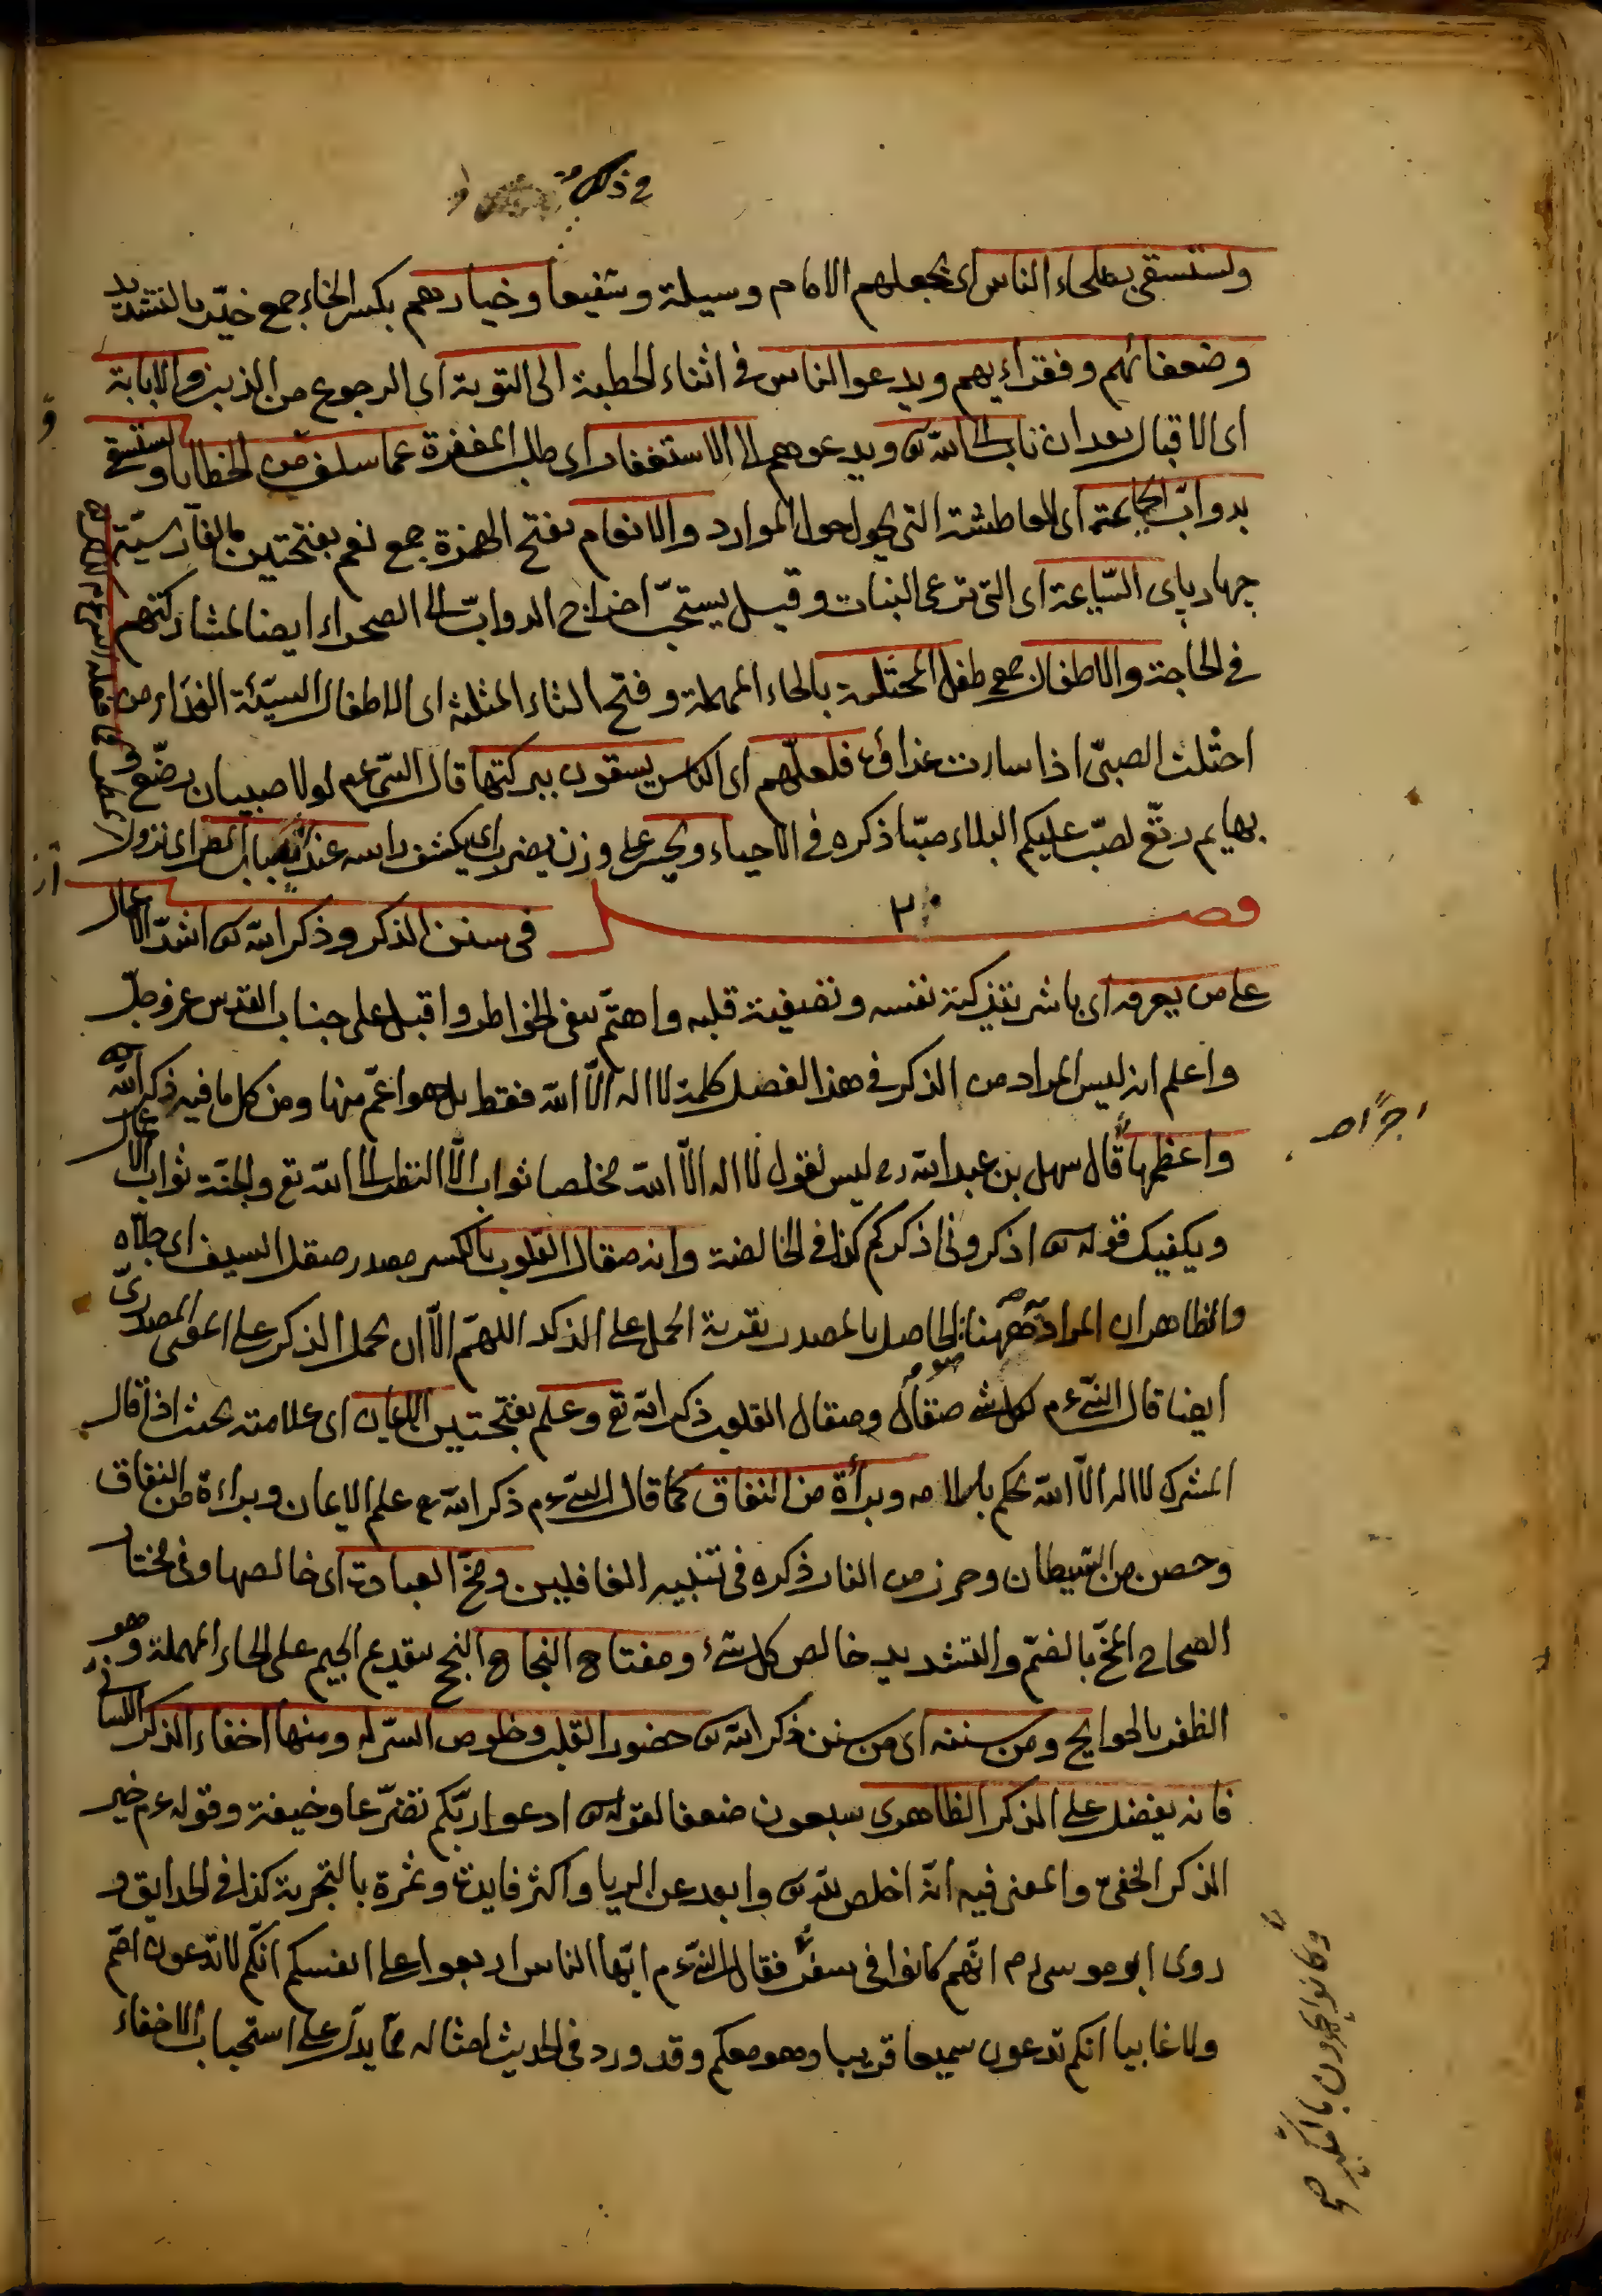 في ذكر
ويستسقي بصلحاء الناس اى يجعلهم الامام وسيلة وشفيعا وخيارهم بكسر الخاء جمع خيّر بالتشديد
وضعفائهم وفقراءيهم ويدعو الناس فى اثناء الخطبة الى التوبة اى الرجوع من الذنب والانابة
اى الاقبال بعد ان ناب الى الله تع ويدعوهم الى الاستغفار اى طلب المغفرة عما سلف من الخطايا ويستسقي
بدوابّ الحائمة اى العاطشة التى يحول حول الموارد والانعام بفتح الهمزة جمع نعم بفتحتين بالفارسيّة
جهارپاى السّايمة اى التى ترعى النبات وقيل يستحبّ اخراج الدوابّ الى الصحراء ايضا لمشاركتهم
فى الحاجة والاطفال جمع طفل المحثلة بالحاء المهملة وفتح الثاء المثلثة اى الاطفال السيّئة الغذاء من
احثلت الصبىّ اذا ساءت غذاؤه فلعلّهم اى الناس يسقون ببركتها قال النبى عم لولا صبيان رضّع و
بهايم رتّع لصبّ عليكم البلاء صبّا ذكره فى الاحياء ويحسر على وزن يضرب اى يكشف راسه عند انصباب المطر اى نزوله
فصل فى سنن الذكر وذكر الله تع اشدّ الاعمال
على من يعرفه اى باشر بتذكية نفسه وتصفية قلبه واهتمّ بنفى الخواطر واقبل على جناب القدس عز وجلّ
واعلم انه ليس المراد من الذكر فى هذا الفصل كلمة لا اله الّا الله فقط بل هو اعمّ منها ومن كل ما فيه ذكر الله
واعظمها قال سهل بن عبد الله ره ليس لقول لا اله الّا الله مخلصا ثواب الّا النظر الى الله تع والجنّة ثواب الاعمال
اجرًا صح
ويكفيك قوله تع اذكرونى اذكركم كذا فى الخالصة وانه صقال القلوب بالكسر مصدر صقل السيف اى جلّاه
والظاهر ان المراد ههنا الحاصل بالمصدر بقرينة الحمل على الذكر اللهمّ الّا ان يحمل الذكر على المعنى المصدرىّ
ايضا قال النبىّ عم لكل شئ صقال وصقال القلوب ذكر الله تع وعلم بفتحتين الايمان اى علامته بحيث اذا قال
المشرك لا اله الّا الله يحكم باسلامه وبرأة من النفاق كما قال النبىّ عم ذكر الله تع علم الايمان وبراءة من النفاق
وحصن من الشيطان وحرز من النار ذكره فى تنبيه الغافلين ومخّ العبادة اى خالصها وفى مختار
الصحاح المخّ بالضمّ والتشديد خالص كل شئ ومفتاح النجاح النجح بتقديم الجيم على الحاء المهملة وهو
الظفر بالحوايج ومن سننه اى من سنن ذكر الله تع حضور القلب وخلوص السرّ له ومنها اخفاء الذكر اللسانى
فانه يفضل على الذكر الظاهرى سبعون ضعفا لقوله تع ادعوا ربّكم تضرّعا وخيفة وقوله عم خير
الذكر الخفىّ والمعنى فيه انّه اخلص لله تع وابعد عن الريا واكثر فايدة وثمرة بالتجربة كذا فى الحدايق و
روى ابو موسى رم انّهم كانوا فى سفر فقال النبىّ عم ايّها الناس اربعوا على انفسكم انّكم لا تدعون اصمّ
ولا غايبا انكم تدعون سميعا قريبا وهو معكم وقد ورد فى الحديث امثاله ممّا يدلّ على استحباب الاخفاء
وكانوا يجهرون بالتكبير صح